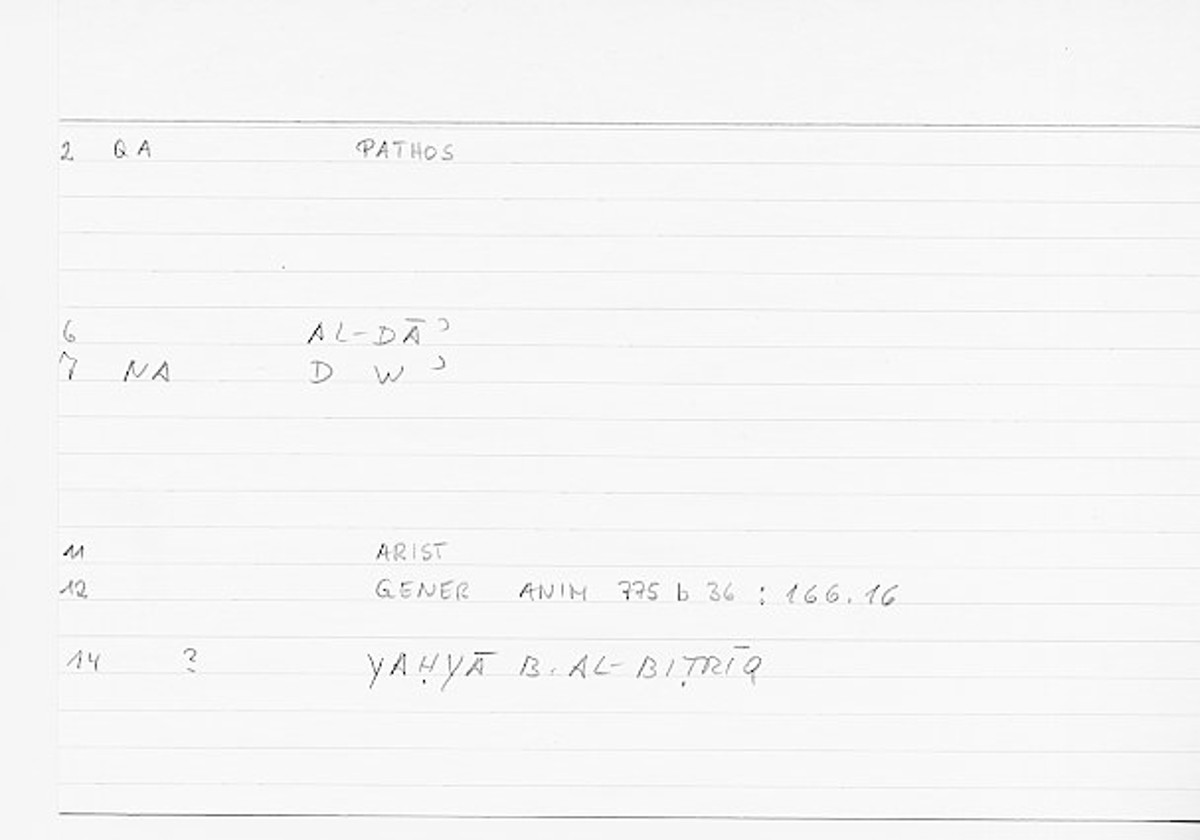 2 QA PATHOS
6 AL-DĀʾ
7 NA D W ʾ
11 ARIST
12 GENER ANIM 775 b 36 : 166.16
14 ? YAḤYĀ B. AL-BIṬRĪQ